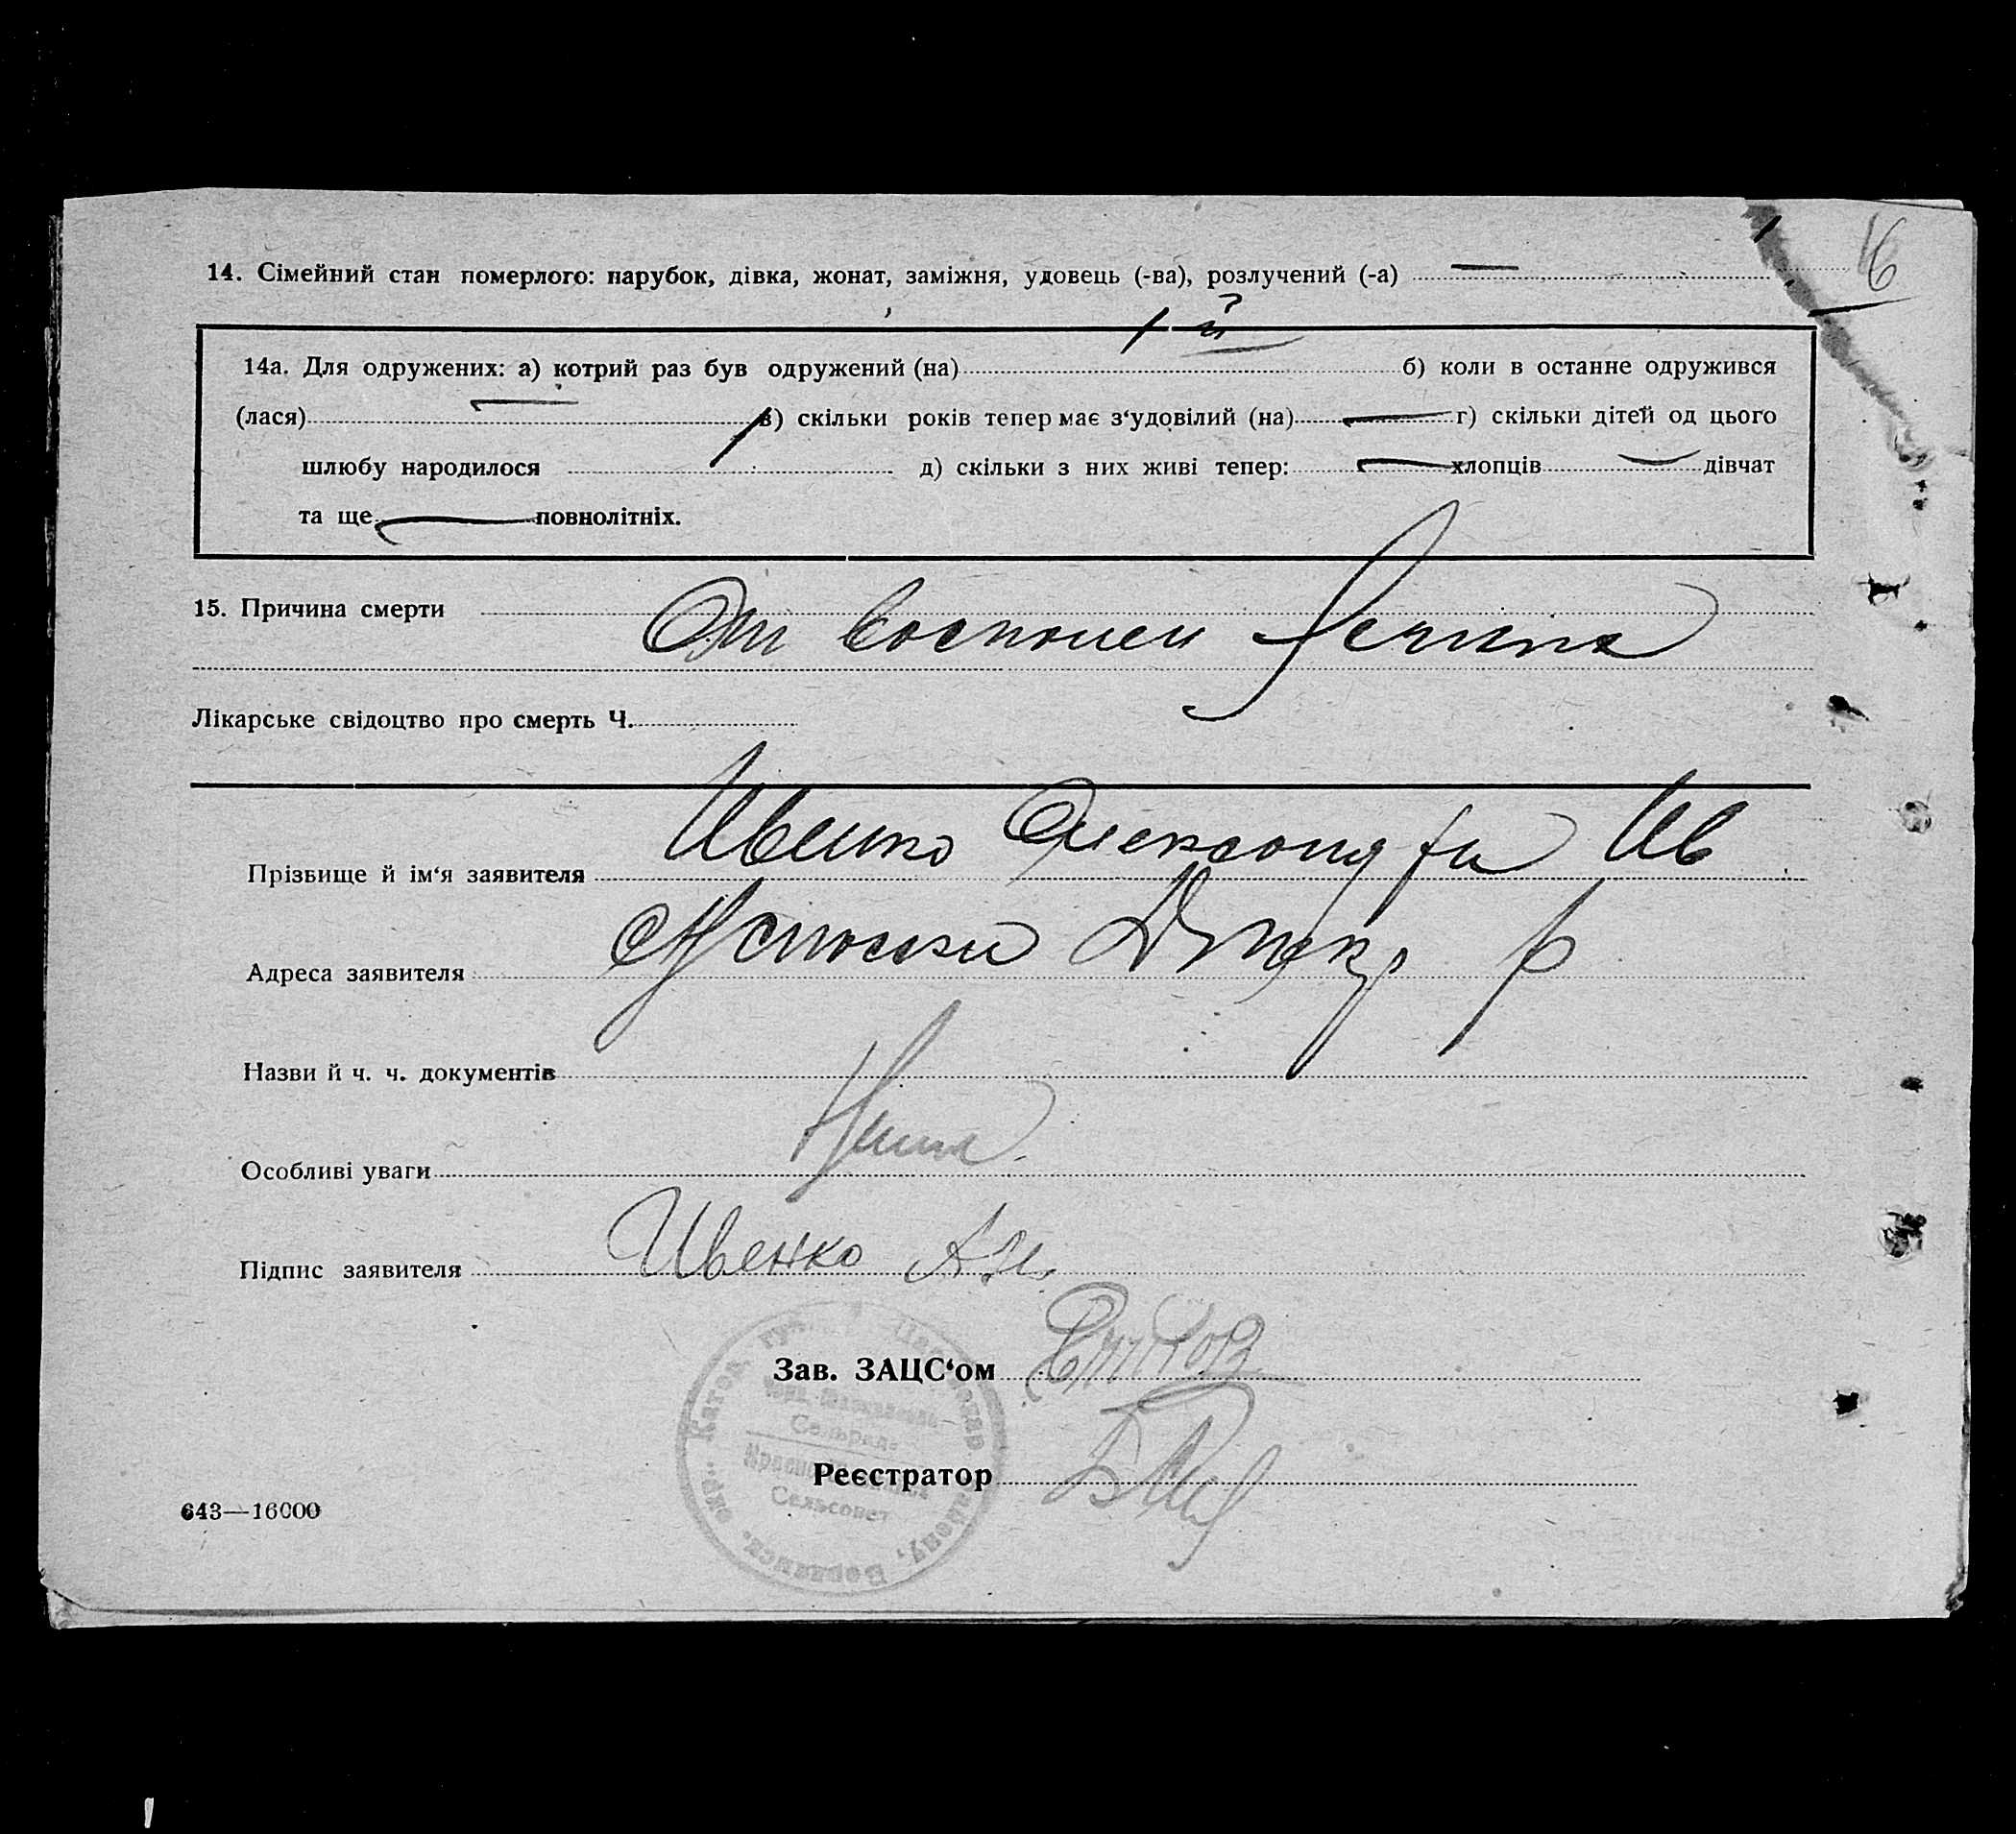 16
14. Сімейний стан померлого: парубок, дівка, жонат, заміжня, удовець (-ва), розлучений (-а) —
1 й
14а. Для одружених: а) котрий раз був одружений (на) б) коли в останне одружився
(лася) — в) скільки років тепер має з'удовілий (на) — г) скільки дітей од цього
шлюбу народилося д) скільки з них живі тепер: — хлопців — дівчат
та ще — повнолітніх.
15. Причина смерти От
Лікарське свідоцтво про смерть Ч.
Прізвище й ім'я заявителя Ивенко Олександра Ив
Адреса заявителя
Назви й ч. ч. документів
Особливі уваги
Підпис заявителя Ивенко А. И.
Зав. ЗАЦС'ом
Реєстратор
Сельрада
Сельсовет
643—16000